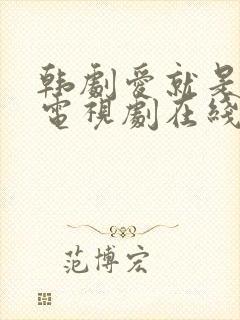 韩劇愛就是
電視劇在綫
范博宏